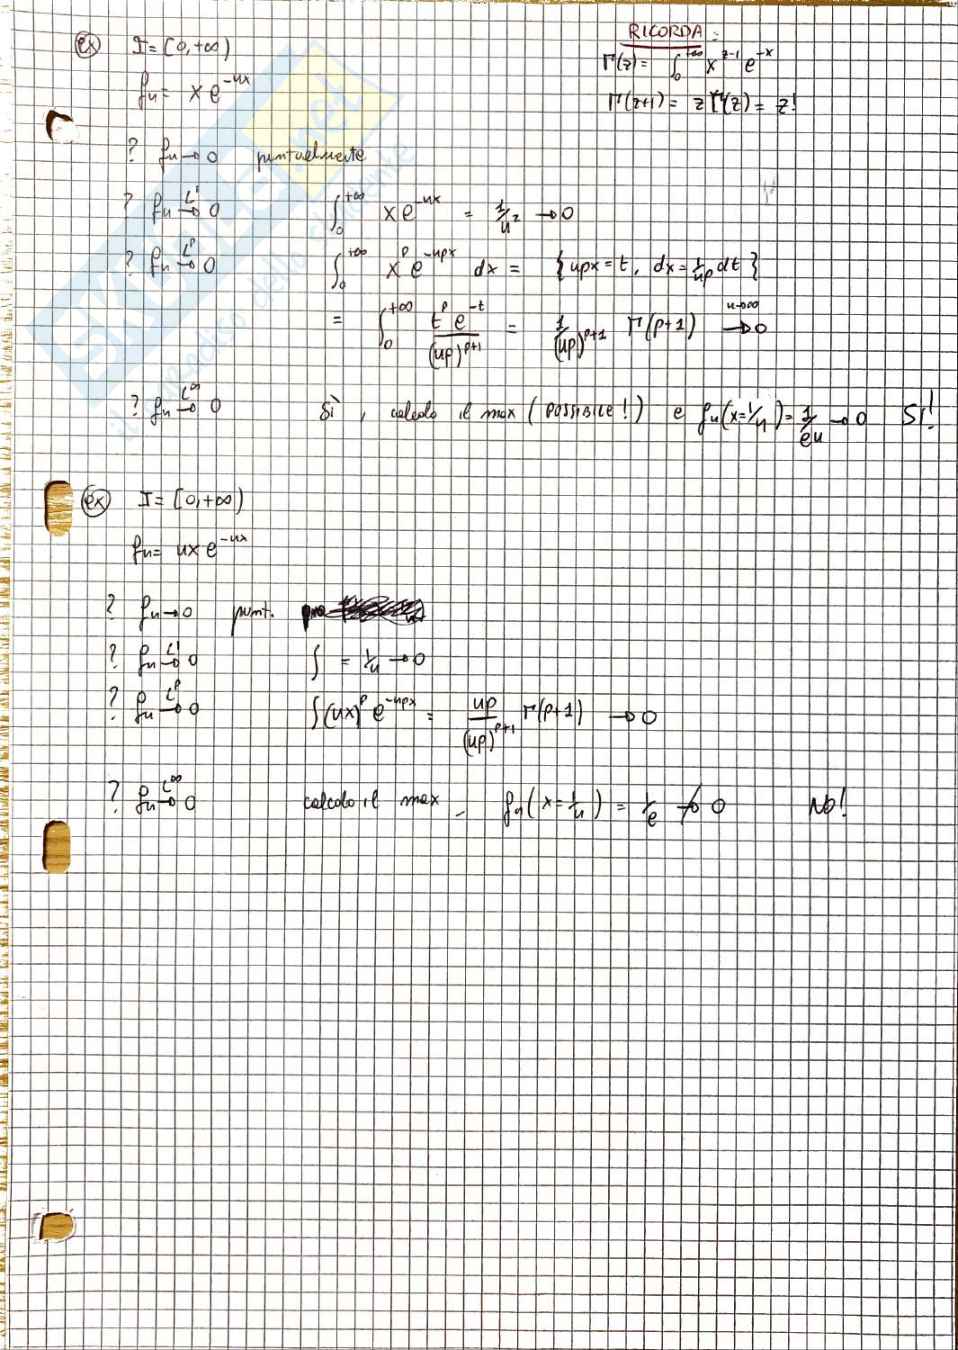 ex I = [0,+∞)
RICORDA:
fn = x e^{-nx}
Γ(z) = ∫_0^{+∞} x^{z-1} e^{-x}
Γ(z+1) = z Γ(z) = z!
? fn → 0 puntualmente
? fn →^{L^1} 0 ∫_0^{+∞} x e^{-nx} = 1/n² → 0
? fn →^{L^p} 0 ∫_0^{+∞} x^p e^{-npx} dx = { npx = t, dx = 1/np dt }
= ∫_0^{+∞} t^p e^{-t} / (np)^{p+1} = 1/(np)^{p+1} Γ(p+1) →^{n→∞} 0
? fn →^{L^∞} 0 Sì, calcolo il max (POSSIBILE!) e fn(x=1/n) = 1/en → 0 SI!
ex I = [0,+∞)
fn = nx e^{-nx}
? fn → 0 punt.
? fn →^{L^1} 0 ∫ = 1/n → 0
? fn →^{L^p} 0 ∫(nx)^p e^{-npx} = np/(np)^{p+1} Γ(p+1) → 0
? fn →^{L^∞} 0 calcolo il max - fn(x=1/n) = 1/e ↛ 0 NO!
SKUOLA.net
il paradiso dello studente